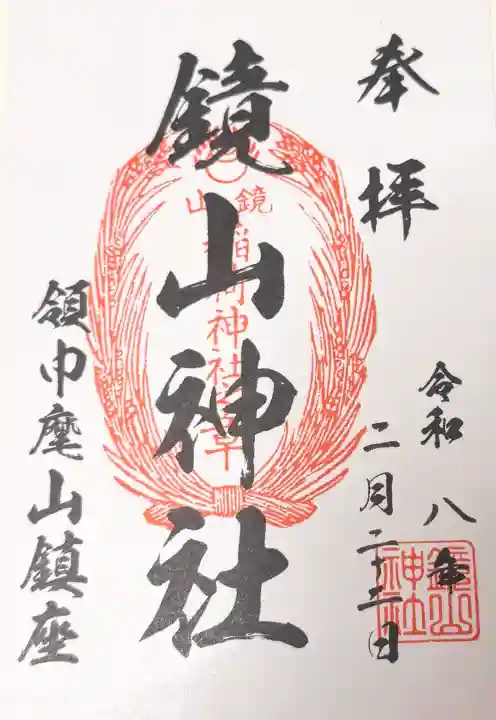 奉拝
令和八年
二月二十二日
鏡山神社
鏡山
稲荷神社
領巾麾山鎮座
鏡山
神社